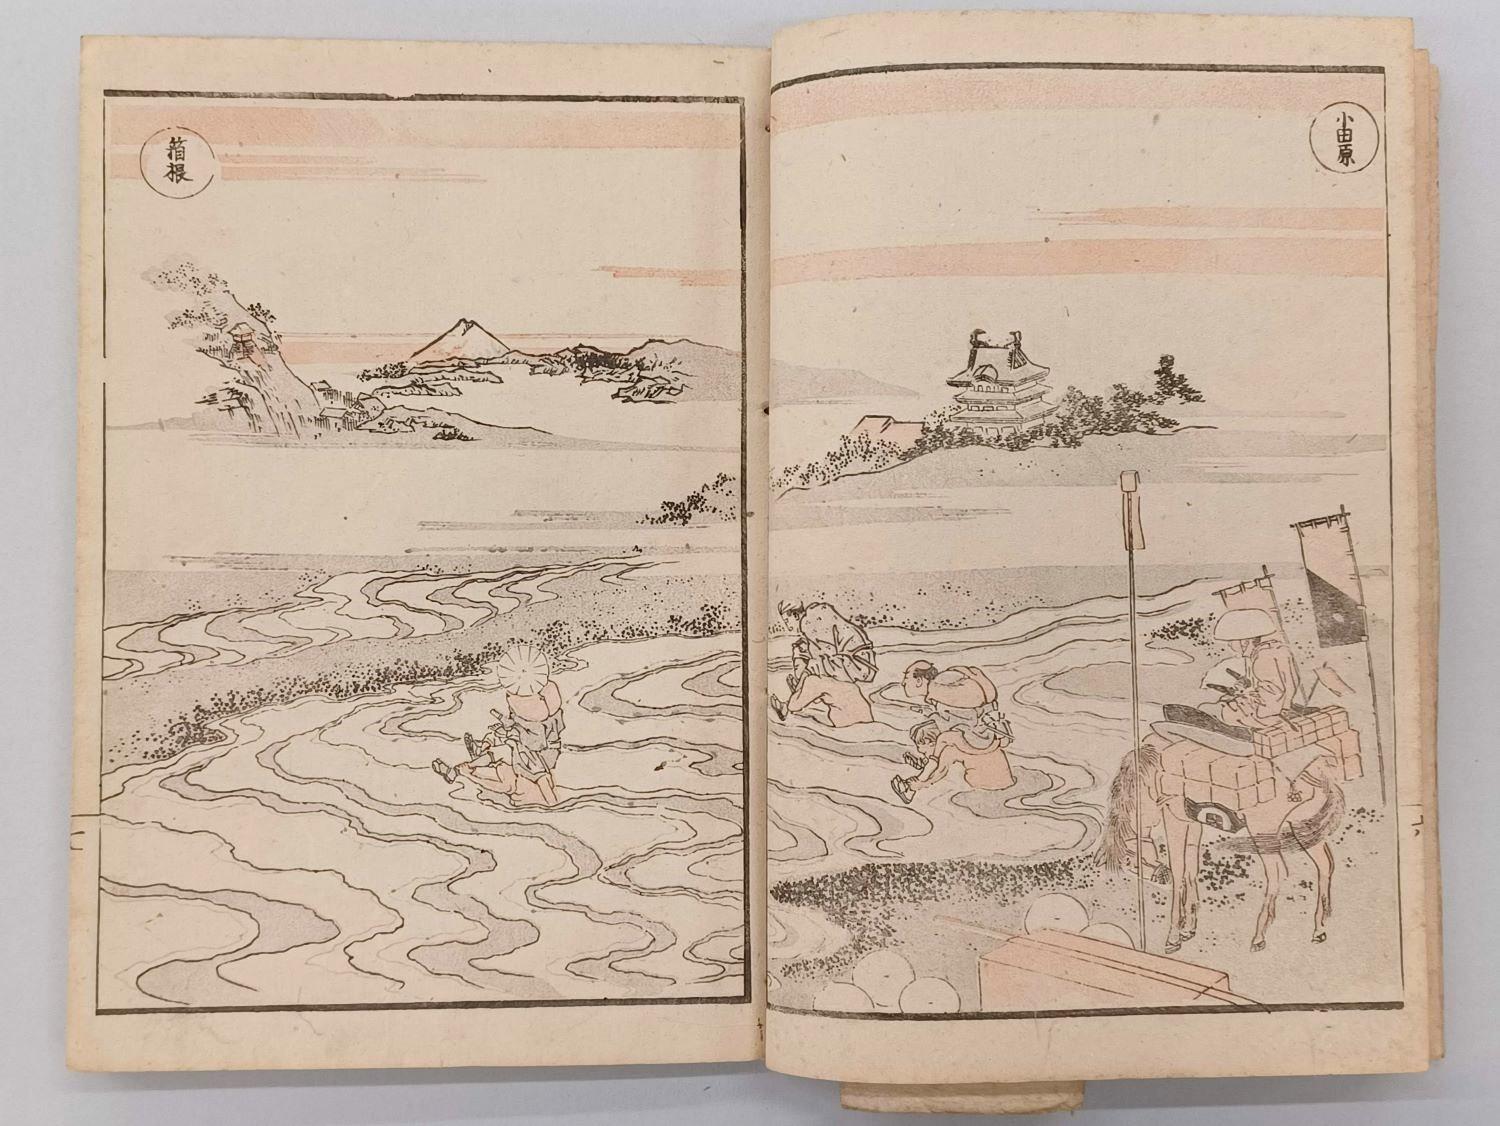 小田原
箱根